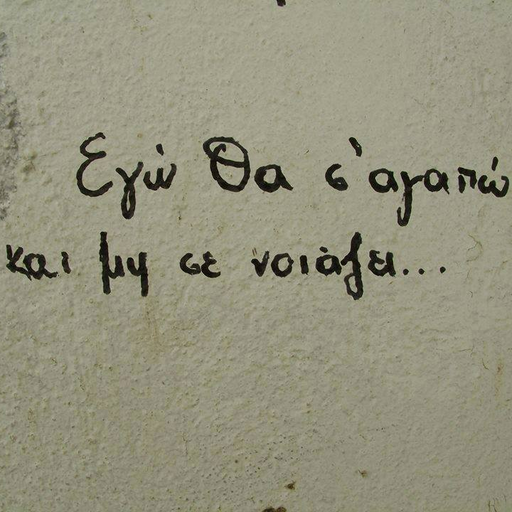 Εγώ Θα σ'αγαπώ
και μη σε νοιάζει...